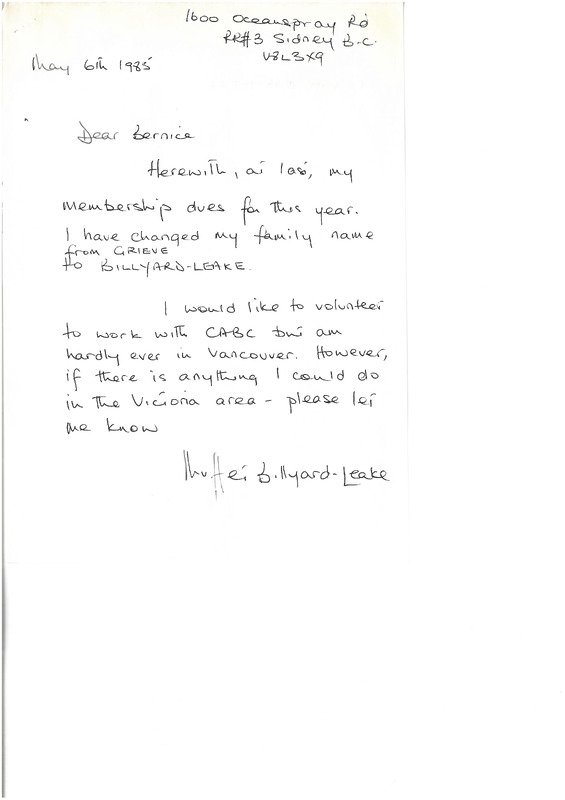 1600 Oceanspray Rd
RR#3 Sidney B.C.
V8L3X9
May 6th 1985
Dear Bernice
Herewith, at last, my
membership dues for this year.
I have changed my family name
from GRIEVE
to BILLYARD-LEAKE.
I would like to volunteer
to work with CABC but am
hardly ever in Vancouver. However,
if there is anything I could do
in the Victoria area - please let
me know
Billyard-Leake